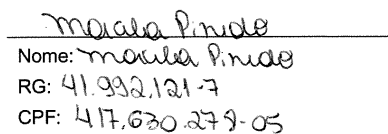 Marcela Pinido
Nome: Marcela Pinido
RG: 41.992.121-7
CPF: 417.630.278-05